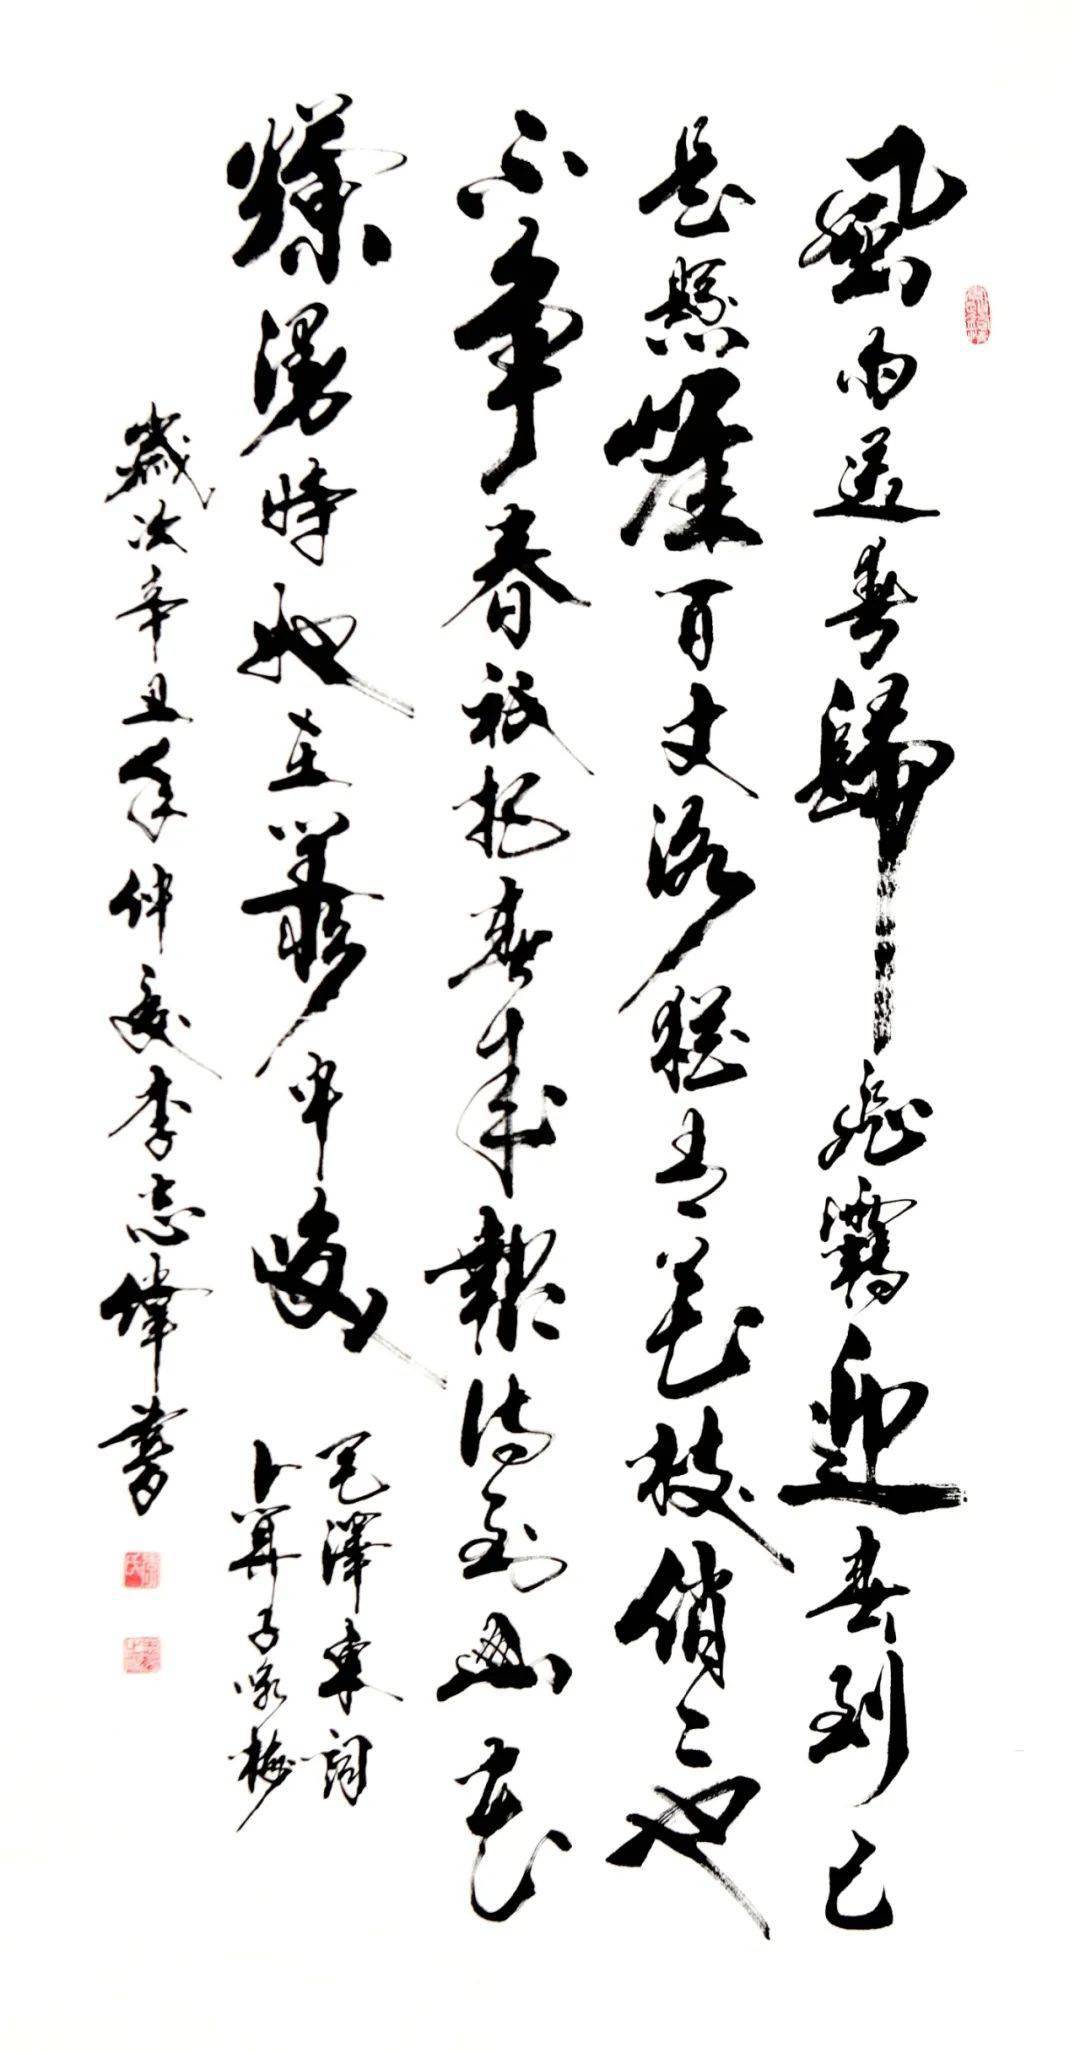 風雨送春歸飛雪迎春到已
是懸崖百丈冰猶有花枝俏〻也
不争春祇把春來報待到山花
爛漫時她在叢中咲
毛澤東詞
卜算子咏梅
歲次辛丑年仲夏李志偉書